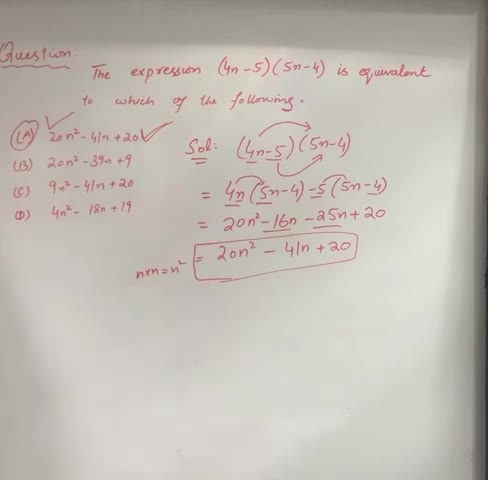 Question:
The expression (4n-5)(5n-4) is equivalent
to which of the following.
(A) 20n²-41n+20
(B) 20n²-39n+9
(C) 9n²-41n+20
(D) 4n²-18n+19
Sol: (4n-5)(5n-4)
= 4n(5n-4)-5(5n-4)
= 20n²-16n-25n+20
n×n=n² = 20n²-41n+20